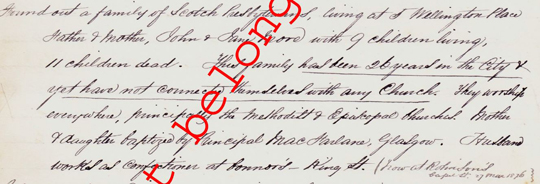 Found out a family of Scotch Presbyterians, living at 5 Wellington Place
Father & Mother, John & Jane Moore with 9 children living,
11 children dead. This family has been 26 years in the City &
yet have not connected themselves with any Church. They worship
everywhere, principally the Methodist & Episcopal Churches. Mother
& daughter baptized by Principal MacFarlane, Glasgow. Husband
works as Confectioner at Connors - King St. (now at Robertson's
17 Mar 1896
t belong